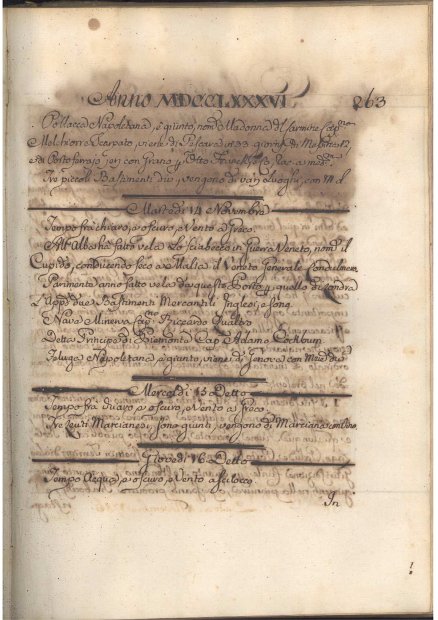 Anno MDCCLXXXVI 263
Pollacca Napoletana, è giunto, nom.ta Madonna del Carmine Cap.no
Melchiorre Scarpato, viene di Pescara in 33 giorni, di Messina 12
e di Porto ferrajo jeri con Grano, e
Tre piccoli Bastimenti div.i, vengono di varj Luoghi, con M. d.
Martedi 14 Novembre
Tempo frà chiaro, e oscuro, e Vento a Greco.
All'Alba hà fatto vela Lo Sciabecco in Guerra Veneto, nom.to il
Cupido, conducendo seco a Malta il Veneto Generale Condulmer.
Parimente anno fatto vela da questo Porto p. quello di Londra
L'App.i due Bastimenti Mercantili Inglesi, e sono.
Nave Minerva Cap.no Riccardo
Detta Principe di Piemonte Cap. Adamo Cockburn
Feluga Napoletana è giunto, viene di Genova con
Mercoldi 15 Detto
Tempo frà chiaro e oscuro, e Vento a Greco.
Tre Leuti Marcianesi, sono giunti, vengono di Marciana con Vino.
Giovedi 16 Detto
Tempo Acquoso, e oscuro, e Vento a Scilocco.
In